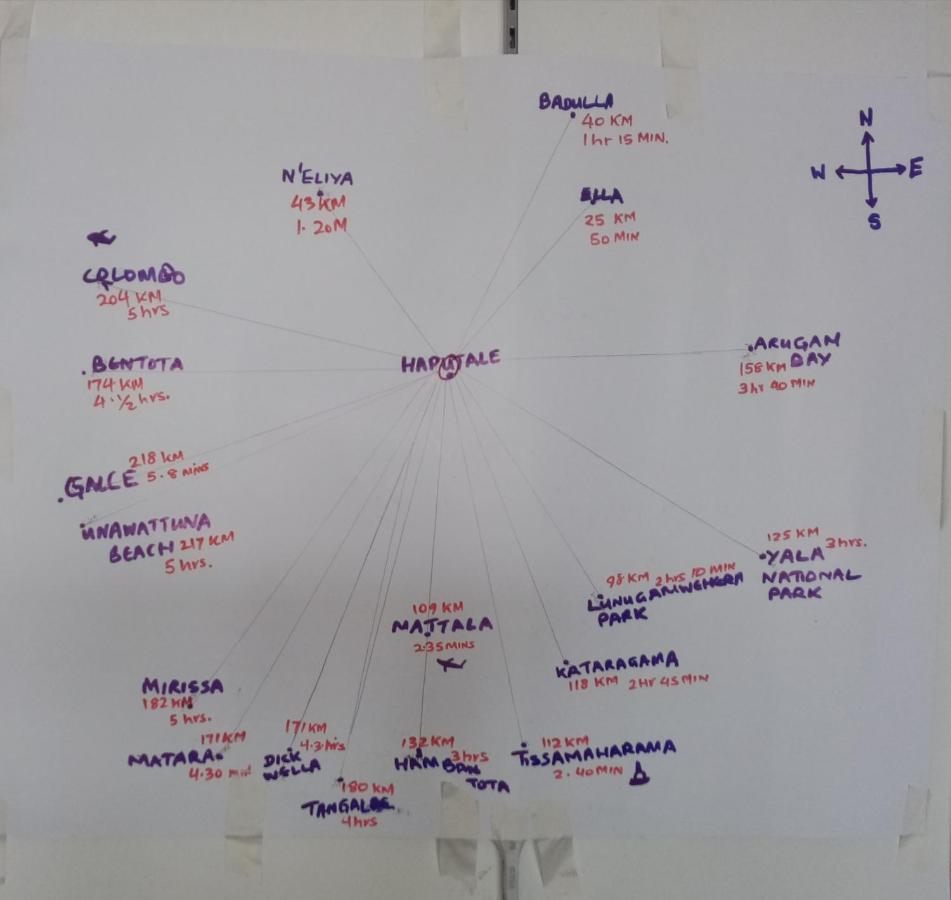 BADULLA
40 KM
1 hr 15 MIN.
N
W E
S
N'ELIYA
43 KM
1. 20 M
ELLA
25 KM
50 MIN
COLOMBO
204 KM
5 hrs
HAPUTALE
ARUGAN
BAY
158 KM
3 hr 40 MIN
BENTOTA
174 KM
4. 1/2 hrs.
218 KM
GALLE 5.8 mins
UNAWATTUNA
BEACH 217 KM
5 hrs.
125 KM
YALA 3 hrs.
NATIONAL
PARK
98 KM 2 hrs 10 MIN
LUNUGAMWEHERA
PARK
109 KM
MATTALA
2.35 MINS
KATARAGAMA
118 KM 2 Hr 45 MIN
MIRISSA
182 KM
5 hrs.
171 KM
MATARA
4.30 min
171 KM
4.3 hrs
DICK
WELLA
180 KM
TANGALLE
4 hrs
132 KM
3 hrs
HAMBAN
TOTA
112 KM
TISSAMAHARAMA
2. 40 MIN